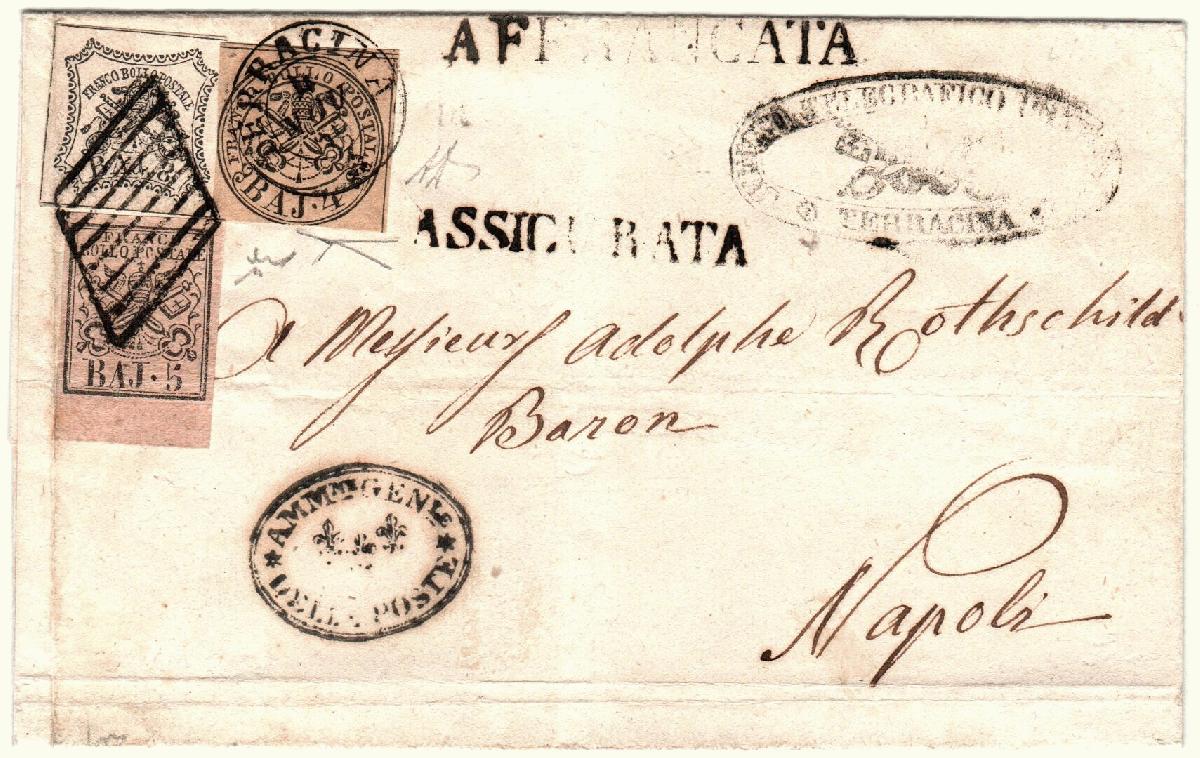 AFFRANCATA
FRANCO BOLLO POSTALE
TERRACINA
BOLLO POSTALE
BAJ·4
TELEGRAFICO
TERRACINA
ASSICURATA
FRANCO
BOLLO POSTALE
BAJ·5
A Messieurs Adolphe Rothschild
Baron
AMMne GENle
DELLE POSTE
Napoli